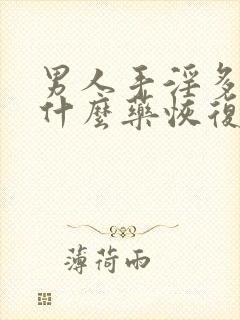 男人手淫多
什麼藥恢復
薄荷雨